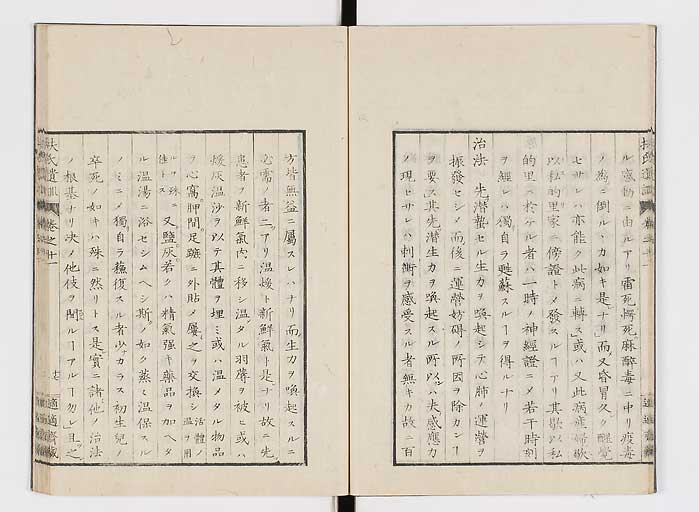 ル感動ニ由ルアリ雷死愕死麻醉毒ニ中リ疫毒
ノ為ニ倒ルヽカ如キ是ナリ而又昏冒久ク醒覺
セサレハ亦能ク此病ニ轉ス或ハ又此病症婦歇
以私的里家ニ傍證トメ發スルヿアリ其歇以私
的里ニ於ケル者ハ一時ノ神經證ニメ若干時刻
ヲ經レハ獨自ラ甦蘇スルヿヲ得ルナリ
治法 先潜蟄セル生力ヲ喚起シテ心肺ノ運營ヲ
振發セシメ而後ニ運營妨碍ノ所因ヲ除カンヿ
ヲ要ス其先潜生力ヲ喚起スル所以ハ夫感應力
ノ現ヒサレハ刺衝ヲ感受スル者無キカ故ニ百
方皆無益ニ屬スレハナリ而生力ヲ喚起スルニ
必需ノ者二アリ温煖ト新鮮氣ト是ナリ故ニ先
患者ヲ新鮮氣内ニ移シ温タル羽蓐ヲ被ヒ或ハ
煖灰温沙ヲ以テ其體ヲ埋ミ或ハ温メタル物品
ヲ心窩胛間足蹠ニ外貼メ屢之ヲ交換シ活體ノ温ヲ用
ルヲ殊ニ佳トス又鹽灰若クハ精氣強キ藥品ヲ加ヘタ
ル温湯ニ浴セシムヘシ斯ノ如ク蒸ミ温保スル
ノミニメ獨自ラ蘓復スル者少カラス初生兒ノ
卒死ノ如キハ殊ニ然リトス是實ニ諸他ノ治法
ノ根基ナリ决ノ他彼ヲ閙ルヿアルヿ勿レ且之
扶氏遺訓 卷之十一
適適齋藏